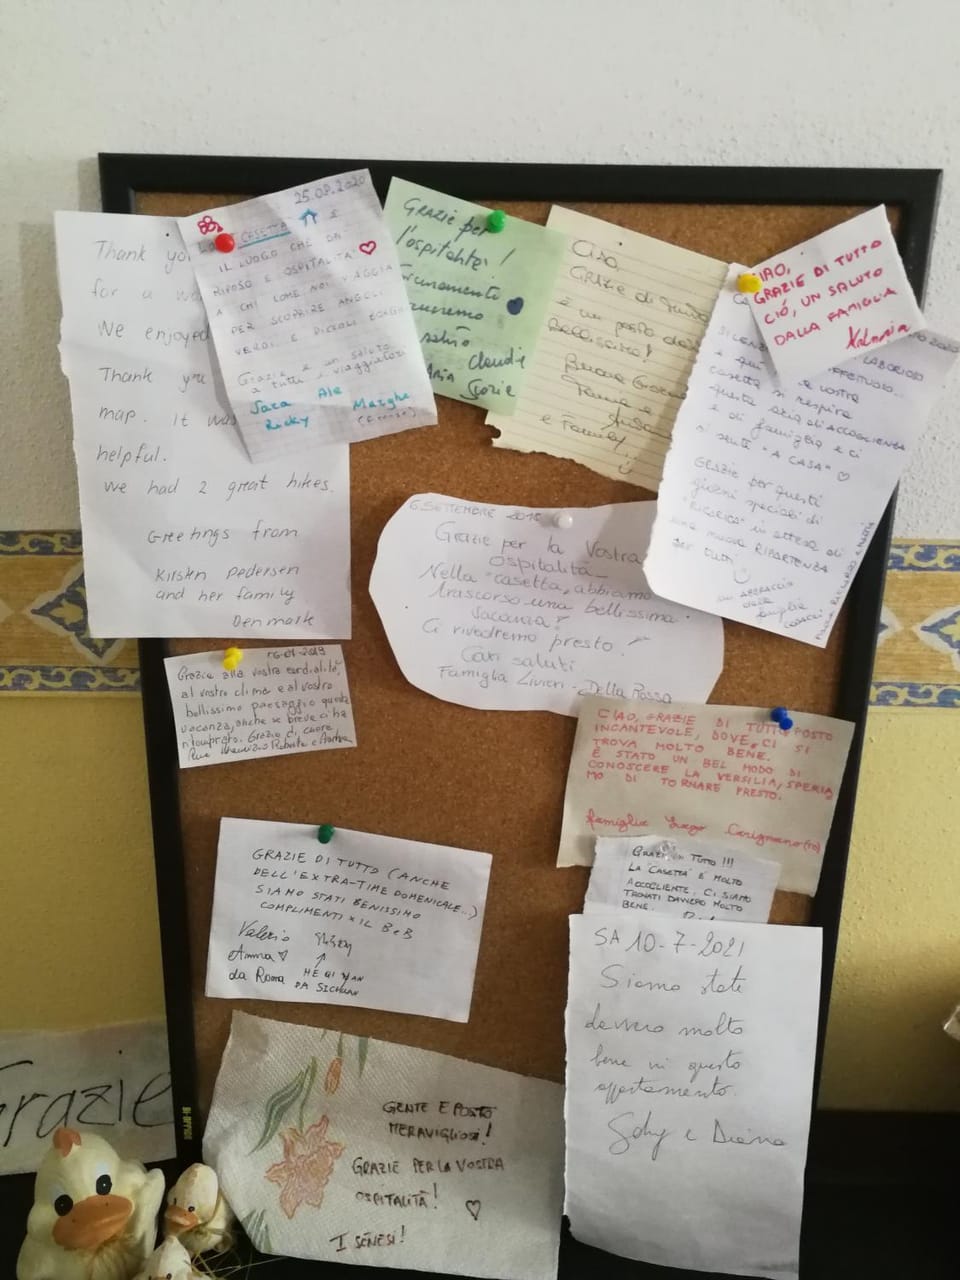 Thank you
for a wo
We enjoyed
Thank you
map. It was
helpful.
We had 2 great hikes.
Greetings from
Kirsten Pedersen
and her family
Denmark
25.08.2020
CASETTA È
IL LUOGO CHE DA
RIPOSO E OSPITALITA'
A CHI COME NOI VIAGGIA
PER SCOPRIRE ANGOLI
VERDI E PICCOLI BORGHI
Grazie e un saluto
a tutti i viaggiatori
Sara Ale Marghe
Ricky
Grazie per
l'ospitalità!
saluto
Claudie
Ciao,
GRAZIE di
è un posto
Bellissimo!
e Family...
CIAO,
GRAZIE DI TUTTO
CIÒ, UN SALUTO
DALLA FAMIGLIA
LABORIOSO
casetta si respira
questa aria di ACCOGLIENZA
e di famiglia e ci
si sente "A CASA"
GRAZIE per questi
giorni speciali di
"RICARICA" in attesa di
una nuova RIPARTENZA
per tutti
un abbraccio
dalla
6 SETTEMBRE
Grazie per la Vostra
ospitalità
Nella "casetta, abbiamo
trascorso una bellissima
vacanza!
Ci rivedremo presto!
Cari saluti
Famiglia Livieri - Della Rossa
2019
Grazie alla vostra cordialità,
al vostro clima e al vostro
bellissimo paesaggio questa
vacanza, anche se breve ci ha
Grazie di cuore
Maurizio Roberta e Andrea
CIAO, GRAZIE DI TUTTO POSTO
INCANTEVOLE, DOVE CI SI
TROVA MOLTO BENE.
È STATO UN BEL MODO DI
CONOSCERE LA VERSILIA, SPERIA
MO DI TORNARE PRESTO.
famiglia Carignano (TO)
TUTTO !!!
LA "CASETTA" È MOLTO
ACCOGLIENTE. CI SIAMO
TROVATI DAVVERO MOLTO
BENE.
GRAZIE DI TUTTO (ANCHE
DELL'EXTRA-TIME DOMENICALE...)
SIAMO STATI BENISSIMO
COMPLIMENTI X IL B e B
Valerio
Anna
da Roma
HE QI
DA SICHUAN
SA 10-7-2021
Siamo state
davvero molto
bene in questo
appartamento.
e Diana
GENTE E POSTO
MERAVIGLIOSI!
GRAZIE PER LA VOSTRA
OSPITALITÀ!
I SENESI!
Grazie